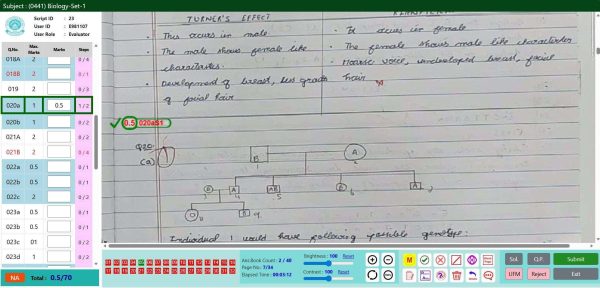 Subject : (0441) Biology-Set-1
Script ID : 23
User ID : E981107
User Role : Evaluator
Q.No. Max. Marks Marks Steps
018A 2 0 / 4
018B 2 0 / 1
019 2 0 / 3
020a 1 0.5 1 / 2
020b 1 0 / 2
021A 2 0 / 2
021B 2 0 / 4
022a 0.5 0 / 1
022b 0.5 0 / 1
022c 2 0 / 2
023a 0.5 0 / 1
023b 0.5 0 / 1
023c 01 0 / 2
023d 1 0 / 2
NA Total : 0.5/70
TURNER'S EFFECT
• This occurs in male
• The male shows female like
characterstics.
• Development of breast, less growth
of facial hair
• It occurs in female
• The female shows male like characterstics
• Hoarse voice, undeveloped breast, facial
hair
0.5 020aS1
Q20.
(a)
B A
1 2
B A AB B A
3 4 5 6 7
O B
8 9
Individual 1 would have following possible genotype:
Ans Book Count : 2 / 40
Page No : 7/34
Elapsed Time : 00:03:12
Brightness : 100 Reset
Contrast : 100 Reset
M
Sol. Q.P. Submit
UFM Reject Exit